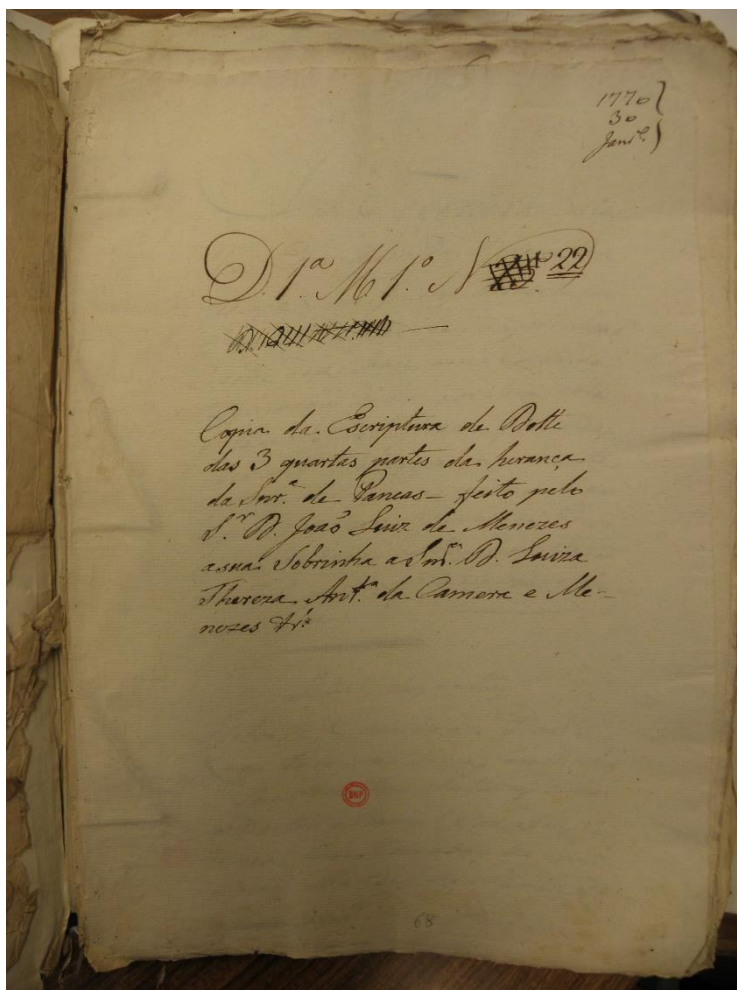 1770
30
Janr.º
D. 1ª M 1º N 22
Copia da Escriptura de Dotte
das 3 quartas partes da herança
da Snr.ª de Pancas - feito pelo
S.r D. Joaõ Luiz de Menezes
a sua Sobrinha a Snr.ª D. Luiza
Thereza Ant.ª da Camera e Me-
nezes
BNP
68